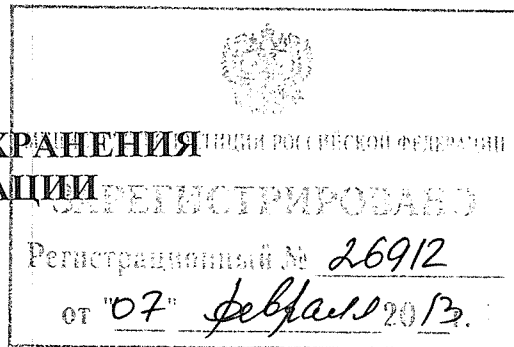 ХРАНЕНИЯ
АЦИИ
ЮСТИЦИИ РОССИЙСКОЙ ФЕДЕРАЦИИ
ЗАРЕГИСТРИРОВАНО
Регистрационный № 26912
от "07" февраля 2013г.